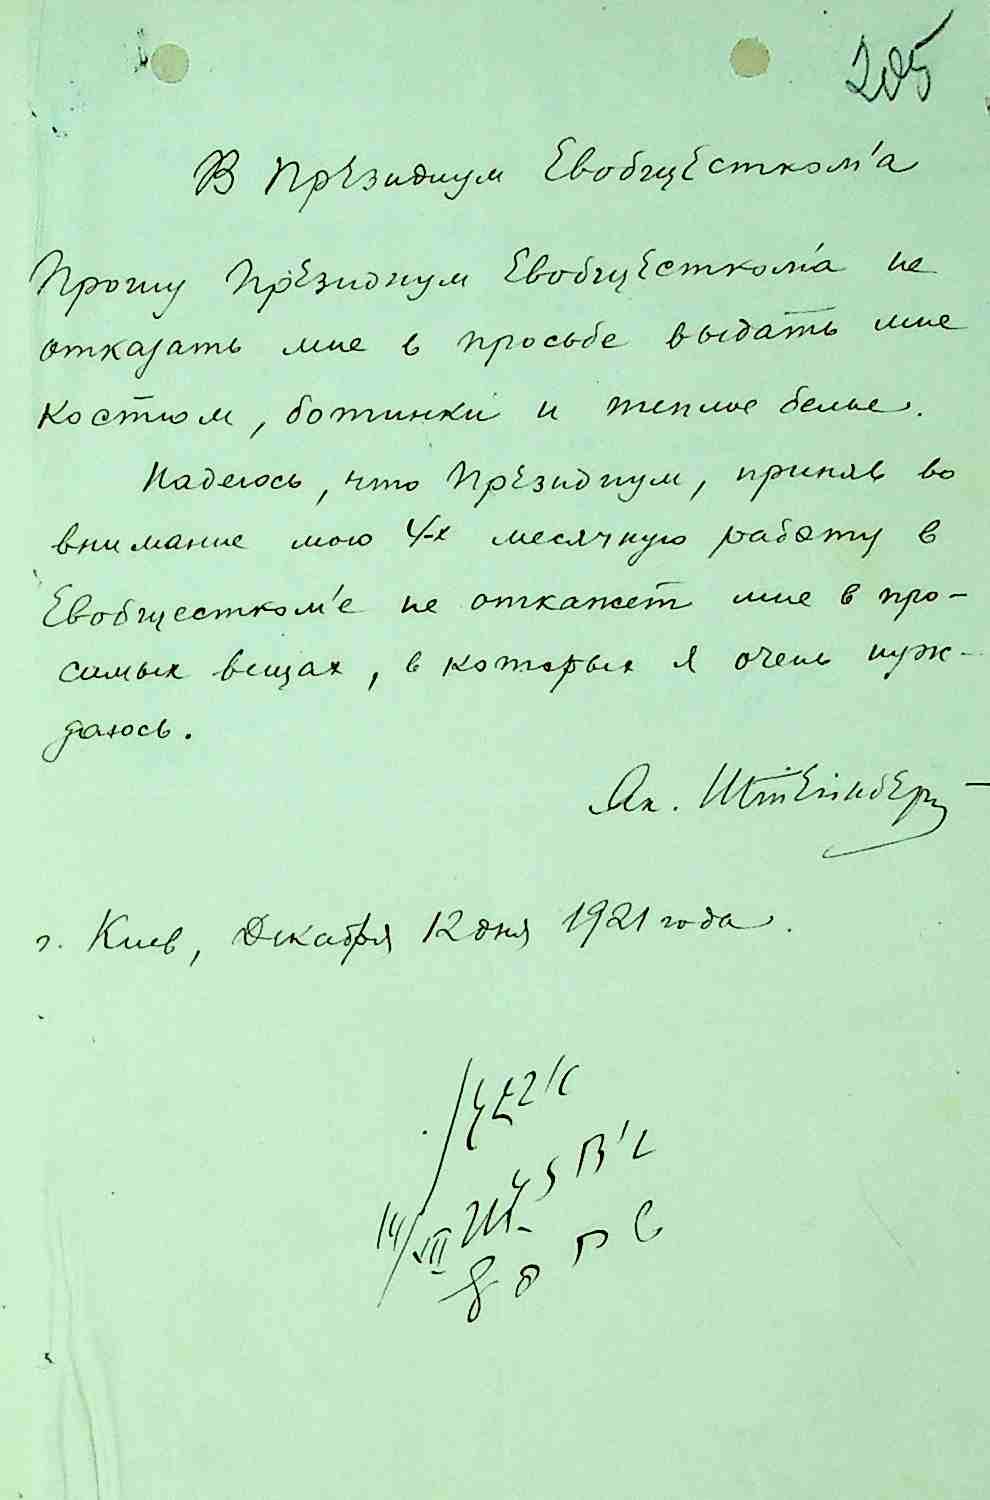 205
В Президиум Евобщестком'а
Прошу Президиум Евобщестком'а не
отказать мне в просьбе выдать мне
костюм, ботинки и теплое белье.
Надеюсь, что Президиум, приняв во
внимание мою 4-х месячную работу в
Евобщестком'е не откажет мне в про-
симых вещах, в которых я очень нуж-
даюсь.
Як. Штейнберг
г. Киев, Декабря 12 дня 1921 года.